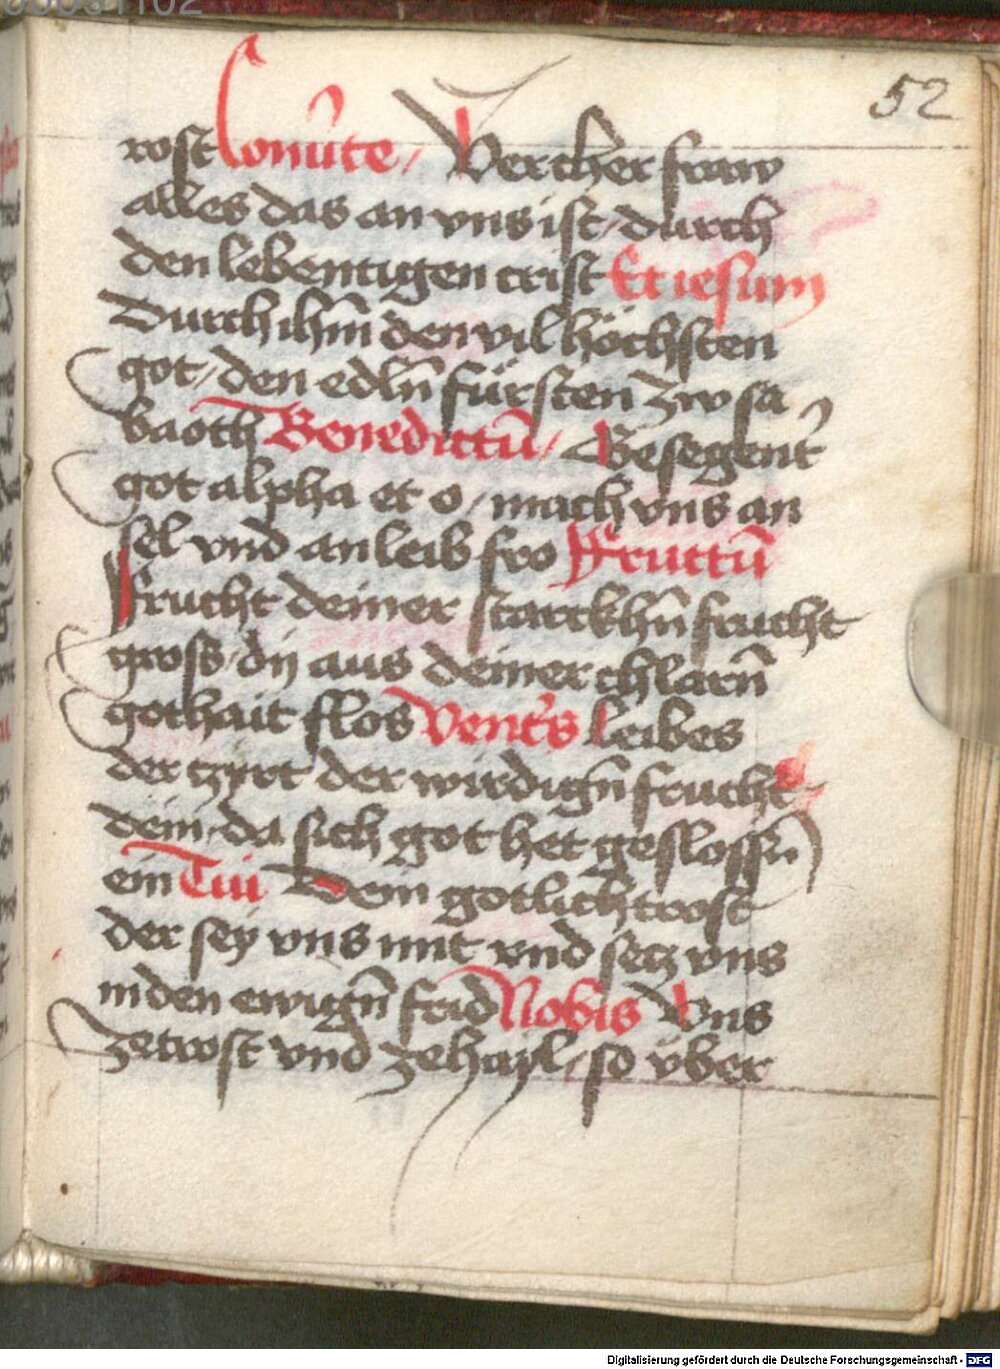 52
rost Conu̅te / Vercher fraw
alles das an vns ist / durch
den lebentigen crist Et iesum
Durch ihm̅ den vil höchsten
got / den edln̅ fürsten zw sa
baoth Benedictu̅ / Gesegent
got alpha et o / mach vns an
sel vnd an leib fro Fructu̅
Frucht deiner starckhn̅ frucht
gross dy aus deiner chlarn̅
gothait flos Ventris leibes
der zyrt der wirdign̅ frucht
dein / da sich got het geslossn̅
ein Tui Dein gotlich trost
der sey vns mit vnd secz vns
in den ewign̅ frid Nobis Vns
ze trost vnd ze hayl / so vber
Digitalisierung gefördert durch die Deutsche Forschungsgemeinschaft - DFG